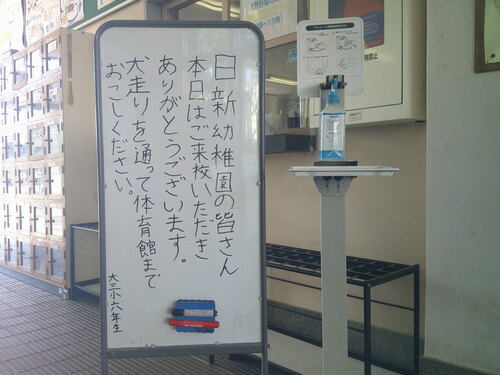 日新幼稚園の皆さん
本日はご来校いただき
ありがとうございます。
犬走りを通って体育館まで
おこしください。
大三小六年生